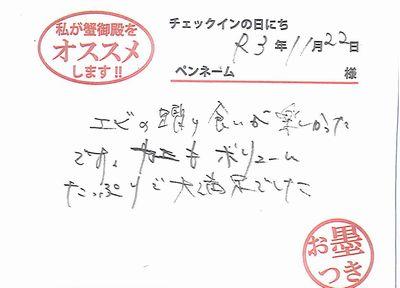 私が蟹御殿を
オススメ
します!!
チェックインの日にち
R3年11月22日
ペンネーム 様
エビの踊り食いが楽しかった
です。カニもボリューム
たっぷりで大満足でした
お墨
つき